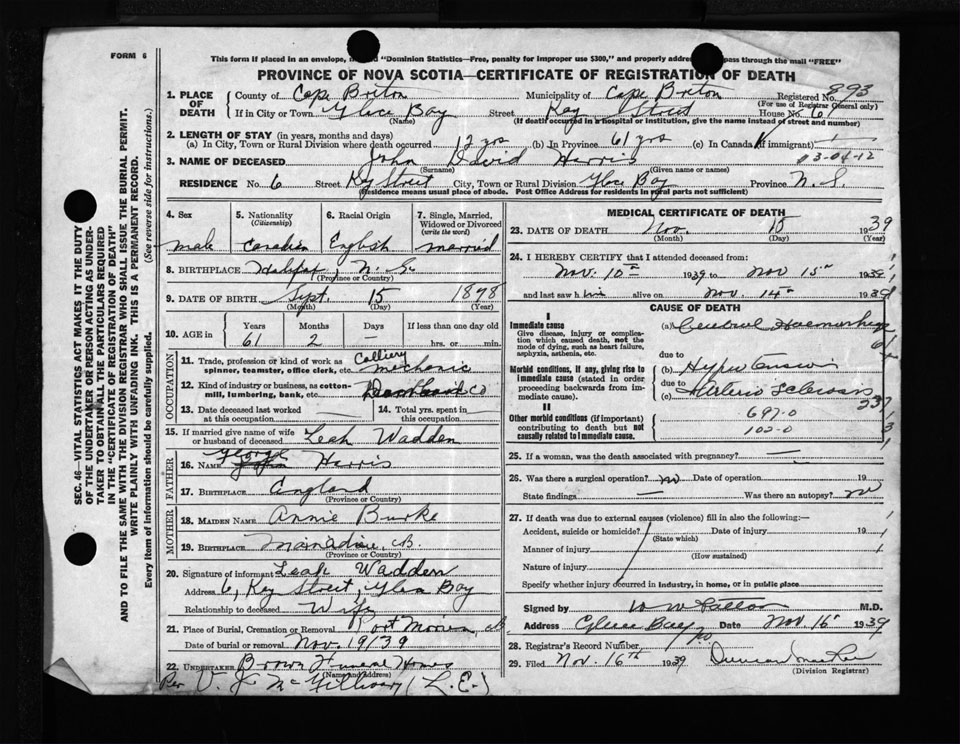 FORM 6
This form if placed in an envelope, "Dominion Statistics—Free, penalty for improper use $300," and properly address pass through the mail "FREE"
PROVINCE OF NOVA SCOTIA—CERTIFICATE OF REGISTRATION OF DEATH
SEC. 46—VITAL STATISTICS ACT MAKES IT THE DUTY
OF THE UNDERTAKER OR PERSON ACTING AS UNDER-
TAKER TO OBTAIN ALL THE PARTICULARS REQUIRED
IN THE "CERTIFICATE OF REGISTRATION OF DEATH"
AND TO FILE THE SAME WITH THE DIVISION REGISTRAR WHO SHALL ISSUE THE BURIAL PERMIT.
WRITE PLAINLY WITH UNFADING INK. THIS IS A PERMANENT RECORD.
Every item of information should be carefully supplied. (See reverse side for instructions.)
1. PLACE OF DEATH County of Cape Breton Municipality of Cape Breton Registered No. 893
(For use of Registrar General only)
If in City or Town Glace Bay Street Kay Street House No. 6
(Name) (If death occurred in a hospital or institution, give the name instead of street and number)
2. LENGTH OF STAY (in years, months and days)
(a) In City, Town or Rural Division where death occurred 12 yrs (b) In Province 61 yrs (c) In Canada (if immigrant)
03-04-12
3. NAME OF DECEASED John David Harris
(Surname) (Given name or names)
RESIDENCE No. 6 Street Kay Street City, Town or Rural Division Glace Bay Province N.S.
(Residence means usual place of abode. Post Office Address for residents in rural parts not sufficient)
4. Sex
male
5. Nationality
(Citizenship)
Canadian
6. Racial Origin
English
7. Single, Married,
Widowed or Divorced
(write the word)
married
8. BIRTHPLACE Halifax, N.S.
(Province or Country)
9. DATE OF BIRTH Sept. 15 1878
(Month) (Day) (Year)
10. AGE in Years Months Days If less than one day old
61 2 — hrs. or min.
OCCUPATION
11. Trade, profession or kind of work as
spinner, teamster, office clerk, etc. Colliery mechanic
12. Kind of industry or business, as cotton-
mill, lumbering, bank, etc. Dom Coal Co
13. Date deceased last worked
at this occupation
14. Total yrs. spent in
this occupation
15. If married give name of wife
or husband of deceased Leah Wadden
FATHER
16. NAME George Harris
17. BIRTHPLACE England
(Province or Country)
MOTHER
18. MAIDEN NAME Annie Burke
19. BIRTHPLACE Mainadieu, CB.
(Province or Country)
20. Signature of informant Leah Wadden
Address 6, Kay Street, Glace Bay
Relationship to deceased Wife
21. Place of Burial, Cremation or Removal Port Morien, CB
Date of burial or removal Nov. 19/39
22. UNDERTAKER Brown Funeral Home
(Name and address)
Per V. J. McGillivary (L.E.)
MEDICAL CERTIFICATE OF DEATH
23. DATE OF DEATH Nov. 15 1939
(Month) (Day) (Year)
24. I HEREBY CERTIFY that I attended deceased from:
Nov. 10th 1939 to Nov 15th 1939
and last saw him alive on Nov. 14th 1939
CAUSE OF DEATH
I
Immediate cause
Give disease, injury or complica-
tion which caused death, not the
mode of dying, such as heart failure,
asphyxia, asthenia, etc.
(a) Cerebral Haemorrhage
due to
Morbid conditions, if any, giving rise to
immediate cause (stated in order
proceeding backwards from im-
mediate cause).
(b) Hypertension
due to
(c) Arterio Sclerosis
II
Other morbid conditions (if important)
contributing to death but not
causally related to immediate cause.
697-0
102-0
25. If a woman, was the death associated with pregnancy? —
26. Was there a surgical operation? no Date of operation 19
State findings — Was there an autopsy? no
27. If death was due to external causes (violence) fill in also the following:—
Accident, suicide or homicide? Date of injury 19
(State which)
Manner of injury
(How sustained)
Nature of injury
Specify whether injury occurred in industry, in home, or in public place
Signed by M.D.
Address Glace Bay Date Nov. 16 1939
28. Registrar's Record Number
29. Filed Nov. 16th 1939
(Division Registrar)